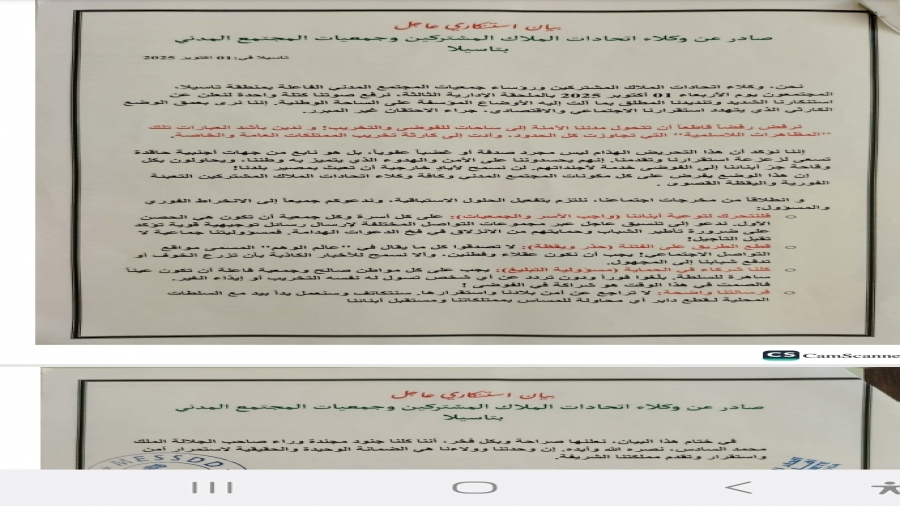 بيان استنكاري عاجل
صادر عن وكلاء اتحادات الملاك المشتركين وجمعيات المجتمع المدني
بتاسيلا
تاسيلا في: 01 أكتوبر 2025
نحن، وكلاء اتحادات الملاك المشتركين ورؤساء جمعيات المجتمع المدني الفاعلة بمنطقة تاسيلا،
المجتمعون يوم الأربعاء 01 أكتوبر 2025 بالملحقة الادارية الثالثة، نرفع صوتنا كتلة واحدة لنعلن عن
استنكارنا الشديد وتنديدنا المطلق بما آلت إليه الأوضاع المؤسفة على الساحة الوطنية. إننا نرى بعمق الوضع
الكارثي الذي يتهدد استقرارنا الاجتماعي والاقتصادي، جراء الاحتقان غير المبرر.
نرفض رفضاً قاطعاً أن تتحول مدننا الآمنة إلى ساحات للفوضى والتخريب! و ندين بأشد العبارات تلك
"المظاهرات اللاسلمية" التي تجاوزت كل الحدود، وأدت إلى كارثة تخريب الممتلكات العامة والخاصة.
إننا نؤكد أن هذا التحريض الهدام ليس مجرد صدفة أو غضباً عفوياً، بل هو نابع من جهات أجنبية حاقدة
تسعى لزعزعة استقرارنا وتقدمنا. إنهم يحسدوننا على الأمن والهدوء الذي يتميز به وطننا، ويحاولون بكل
وقاحة جر أبنائنا إلى الفوضى خدمة لأجنداتهم. لن نسمح لأيادٍ خارجية أن تعبث بمصير بلدنا!
إن هذا الوضع يفرض على كل مكونات المجتمع المدني وكافة وكلاء اتحادات الملاك المشتركين التعبئة
الفورية واليقظة القصوى .
و انطلاقا من مخرجات اجتماعنا، نلتزم بتفعيل الحلول الاستباقية، وندعوكم جميعاً إلى الانخراط الفوري
والمسؤول:
فلنتحرك لتوعية أبنائنا (واجب الأسر والجمعيات): على كل أسرة وكل جمعية أن تكون هي الحصن
الأول. ندعو إلى تنسيق عاجل عبر مجموعات التواصل المختلفة لإرسال رسائل توجيهية قوية تؤكد
على ضرورة تأطير الشباب وحمايتهم من الانزلاق في فخ الدعوات الهدامة. فمسؤوليتنا جماعية لا
تقبل التأجيل!
قطع الطريق على الفتنة (حذر ويقظة): لا تصدقوا كل ما يقال في "عالم الوهم" المسمى مواقع
التواصل الاجتماعي! يجب أن نكون عقلاء وفطنين، وألا نسمح للأخبار الكاذبة بأن تزرع الخوف أو
تدفع شبابنا إلى المجهول.
كلنا شركاء في الحماية (مسؤولية التبليغ): يجب على كل مواطن صالح وجمعية فاعلة أن تكون عينا
ساهرة للسلطة. بلغوا فوراً ودون تردد عن أي شخص تسول له نفسه التخريب أو إيذاء الغير.
فالصمت في هذا الوقت هو شراكة في الفوضى !
فرسالتنا واضحة: لا تراجع عن أمن بلادنا واستقرارها. سنتكاتف وسنعمل يداً بيد مع السلطات
المحلية لقطع دابر أي محاولة للمساس بممتلكاتنا ومستقبل أبنائنا
CS CamScanne
بيان استنكاري عاجل
صادر عن وكلاء اتحادات الملاك المشتركين وجمعيات المجتمع المدني
بتاسيلا
في ختام هذا البيان، نعلنها صراحة وبكل فخر، أننا كلنا جنود مجندة وراء صاحب الجلالة الملك
محمد السادس، نصره الله وأيده. إن وحدتنا وولاءنا هي الضمانة الوحيدة والحقيقية لاستمرار أمن
واستقرار وتقدم مملكتنا الشريفة.